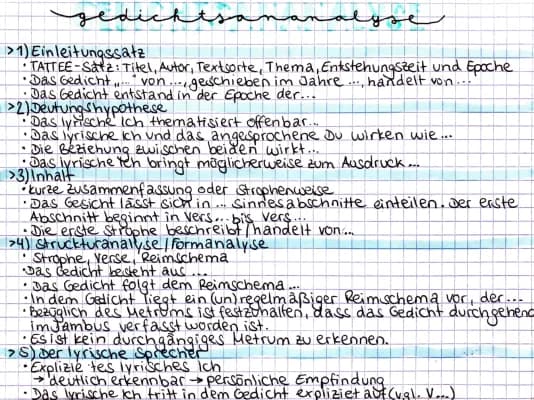 gedichtsananalyse
>1) Einleitungssatz
• TATTEE-Satz: Titel, Autor, Textsorte, Thema, Entstehungszeit und Epoche
• Das Gedicht „..." von ..., geschieben im Jahre ..., handelt von...
• Das Gedicht entstand in der Epoche der...
>2) Deutungshypothese
• Das lyrische Ich thematisiert offenbar...
• Das lyrische Ich und das angesprochene Du wirken wie...
• Die Beziehung zwischen beiden wirkt...
• Das lyrische Ich bringt möglicherweise zum Ausdruck...
>3) Inhalt
• kurze Zusammenfassung oder Strophenweise
• Das Gesicht lässt sich in ... Sinnesabschnitte einteilen. Der erste
Abschnitt beginnt in Vers... bis Vers...
• Die erste Strophe beschreibt/handelt von...
>4) Strukturanalyse/Formanalyse
• Strophe, Verse, Reimschema
• Das Gedicht besteht aus ...
• Das Gedicht folgt dem Reimschema ...
• In dem Gedicht liegt ein (un)regelmäßiger Reimschema vor, der...
• Bezüglich des Metrums ist festzuhalten, dass das Gedicht durchgehend
im Jambus verfasst worden ist.
• Es ist kein durchgängiges Metrum zu erkennen.
>5) Der lyrische Sprecher
• Explizietes lyrisches Ich
→ deutlich erkennbar → persönliche Empfindung
• Das lyrische Ich tritt in dem Gedicht expliziet auf (vgl. V...)